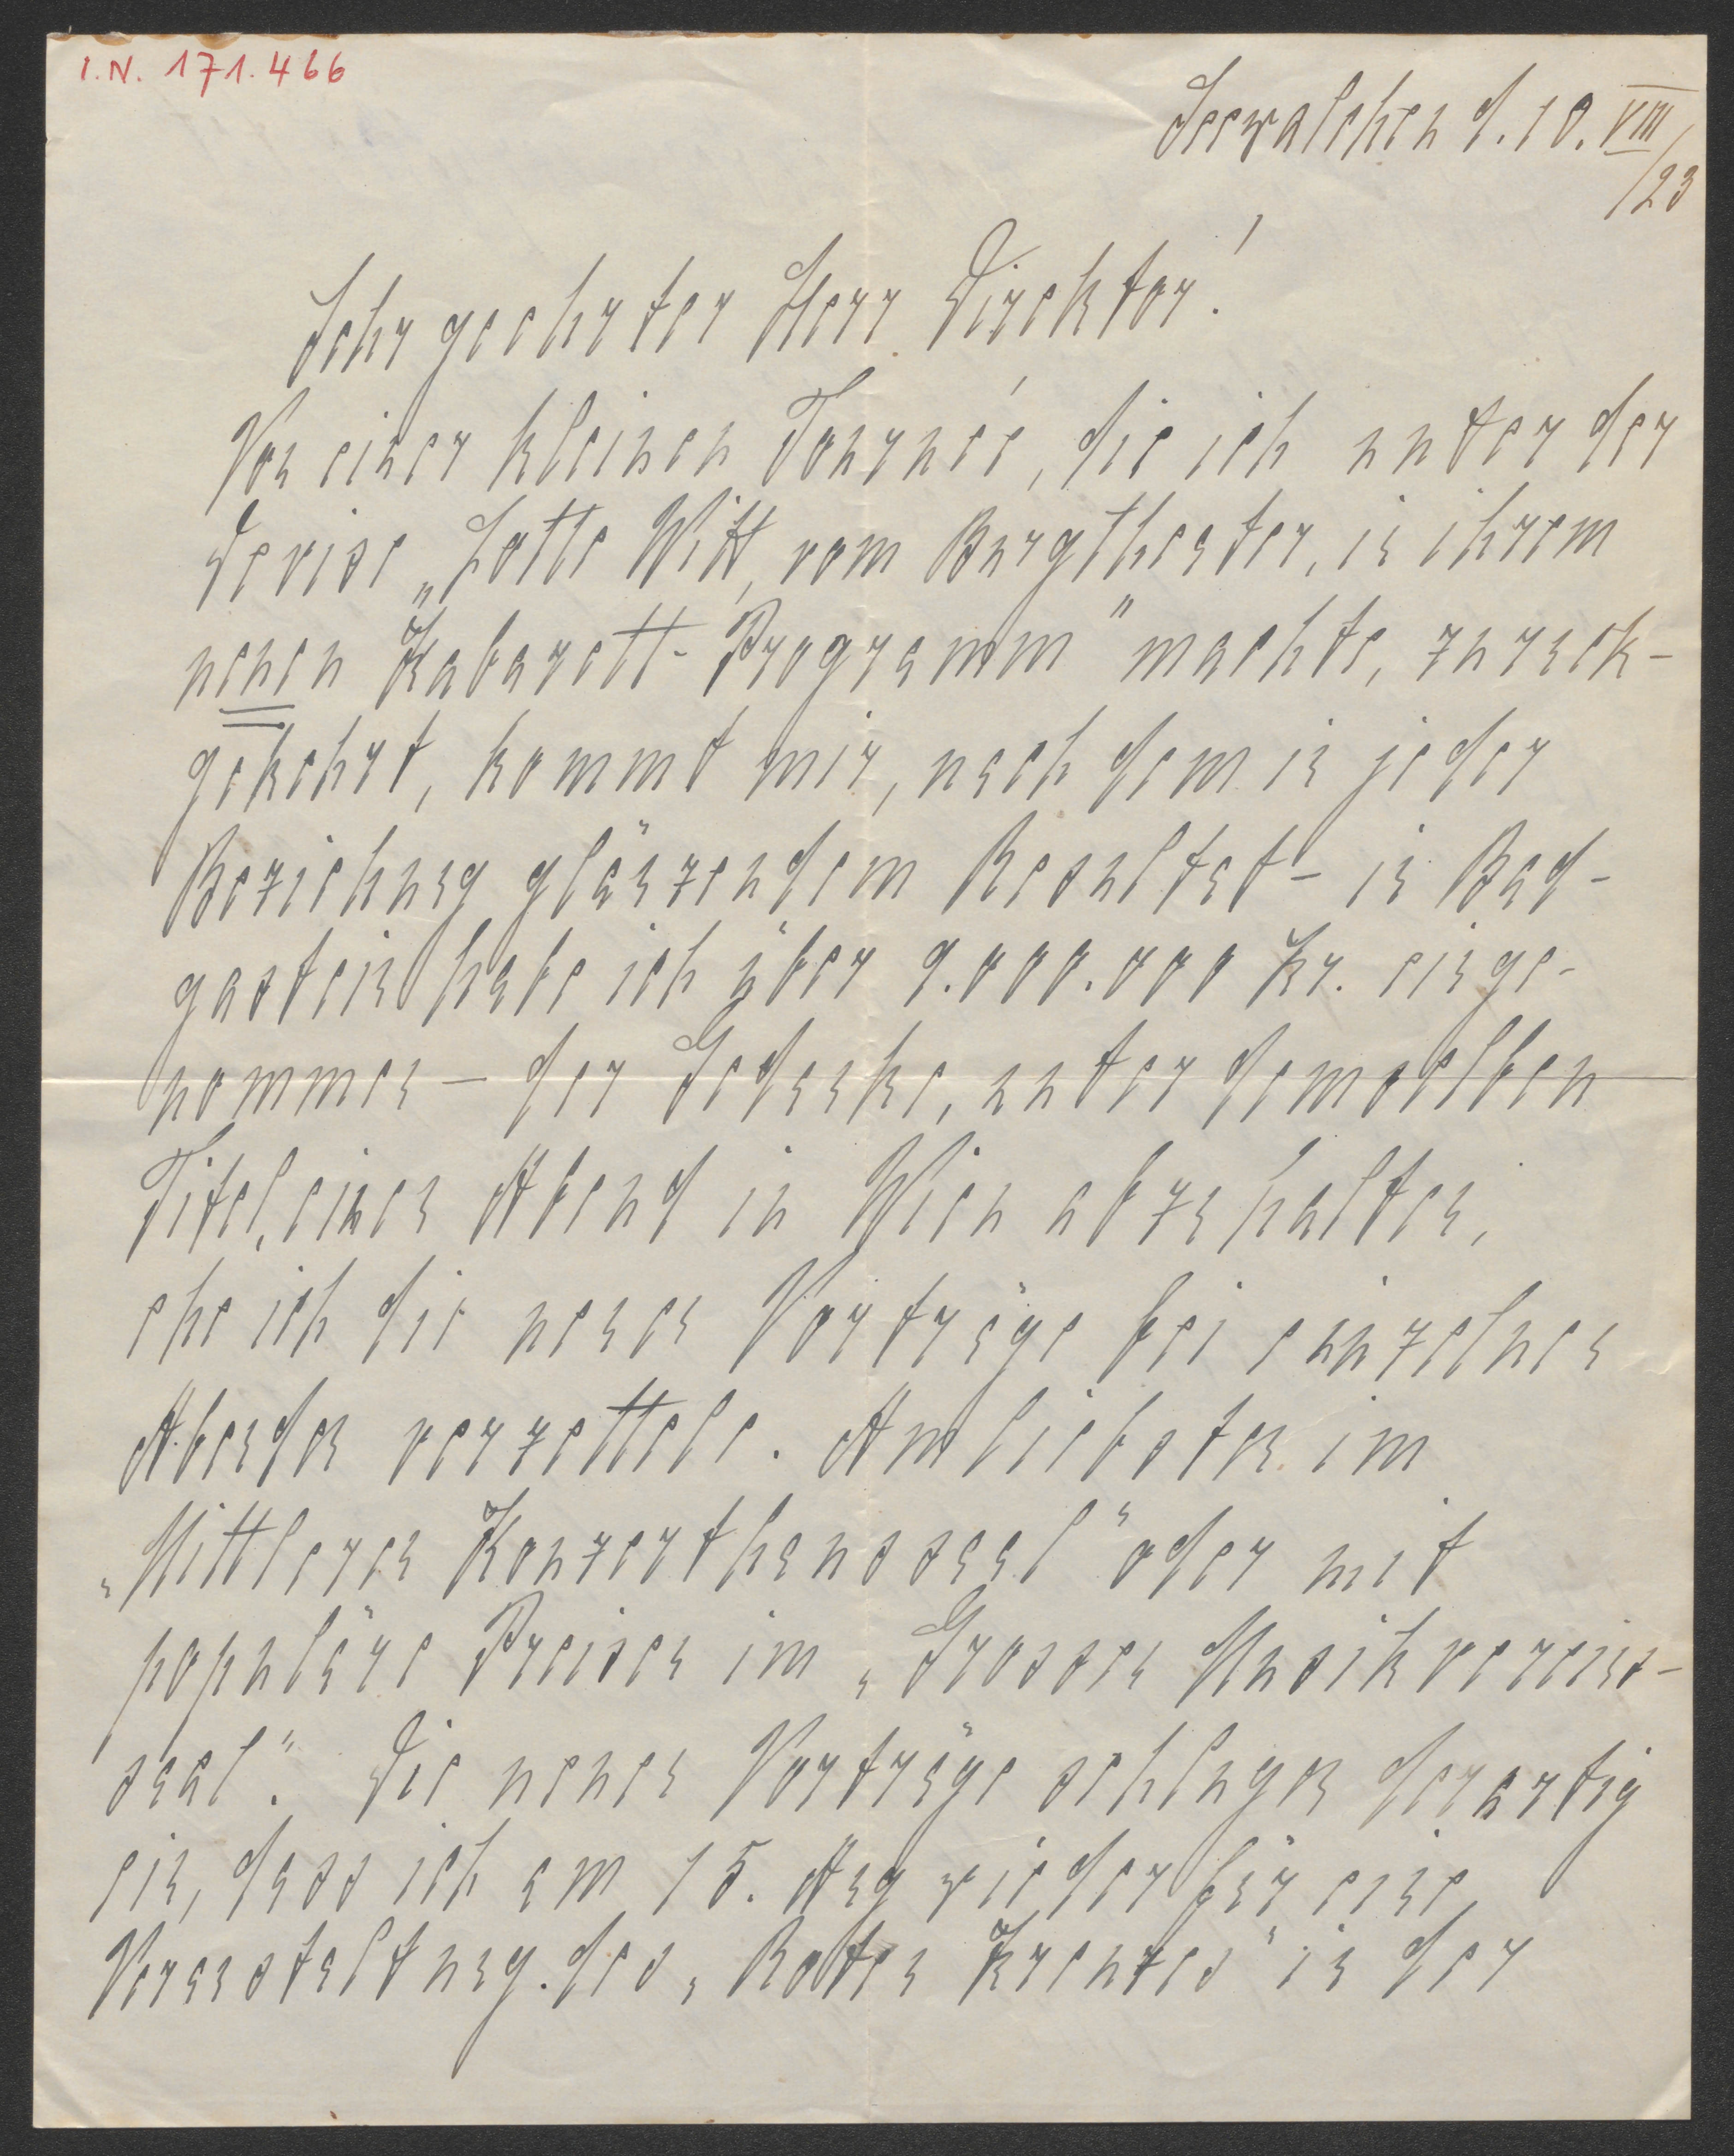 I.N. 171.466
Seewalchen d. 10. VIII
/23
Sehr geehrter Herr Direktor!
Von einer kleinen Tournée, die ich unter der
Devise „Lotte Witt, vom Burgtheater, in ihrem
neuen Kabarett-Programm" machte, zurück-
gekehrt, kommt mir, nach dem in jeder
Beziehung glänzendem Resultat – in Bad-
gastein habe ich über 9.000.000 Kr. einge-
nommen – der Gedanke, unter demselben
Titel, einen Abend in Wien abzuhalten,
ehe ich die neuen Vorträge bei einzelnen
Abenden verzettele. Am liebsten im
„Mittleren Konzerthaussaal" oder mit
populäre Preisen im „Grossen Musikvereins-
saal". Die neuen Vorträge schlugen derartig
ein, dass ich am 15. Aug wieder für eine
Veranstaltung des „Roten Kreuzes" in der